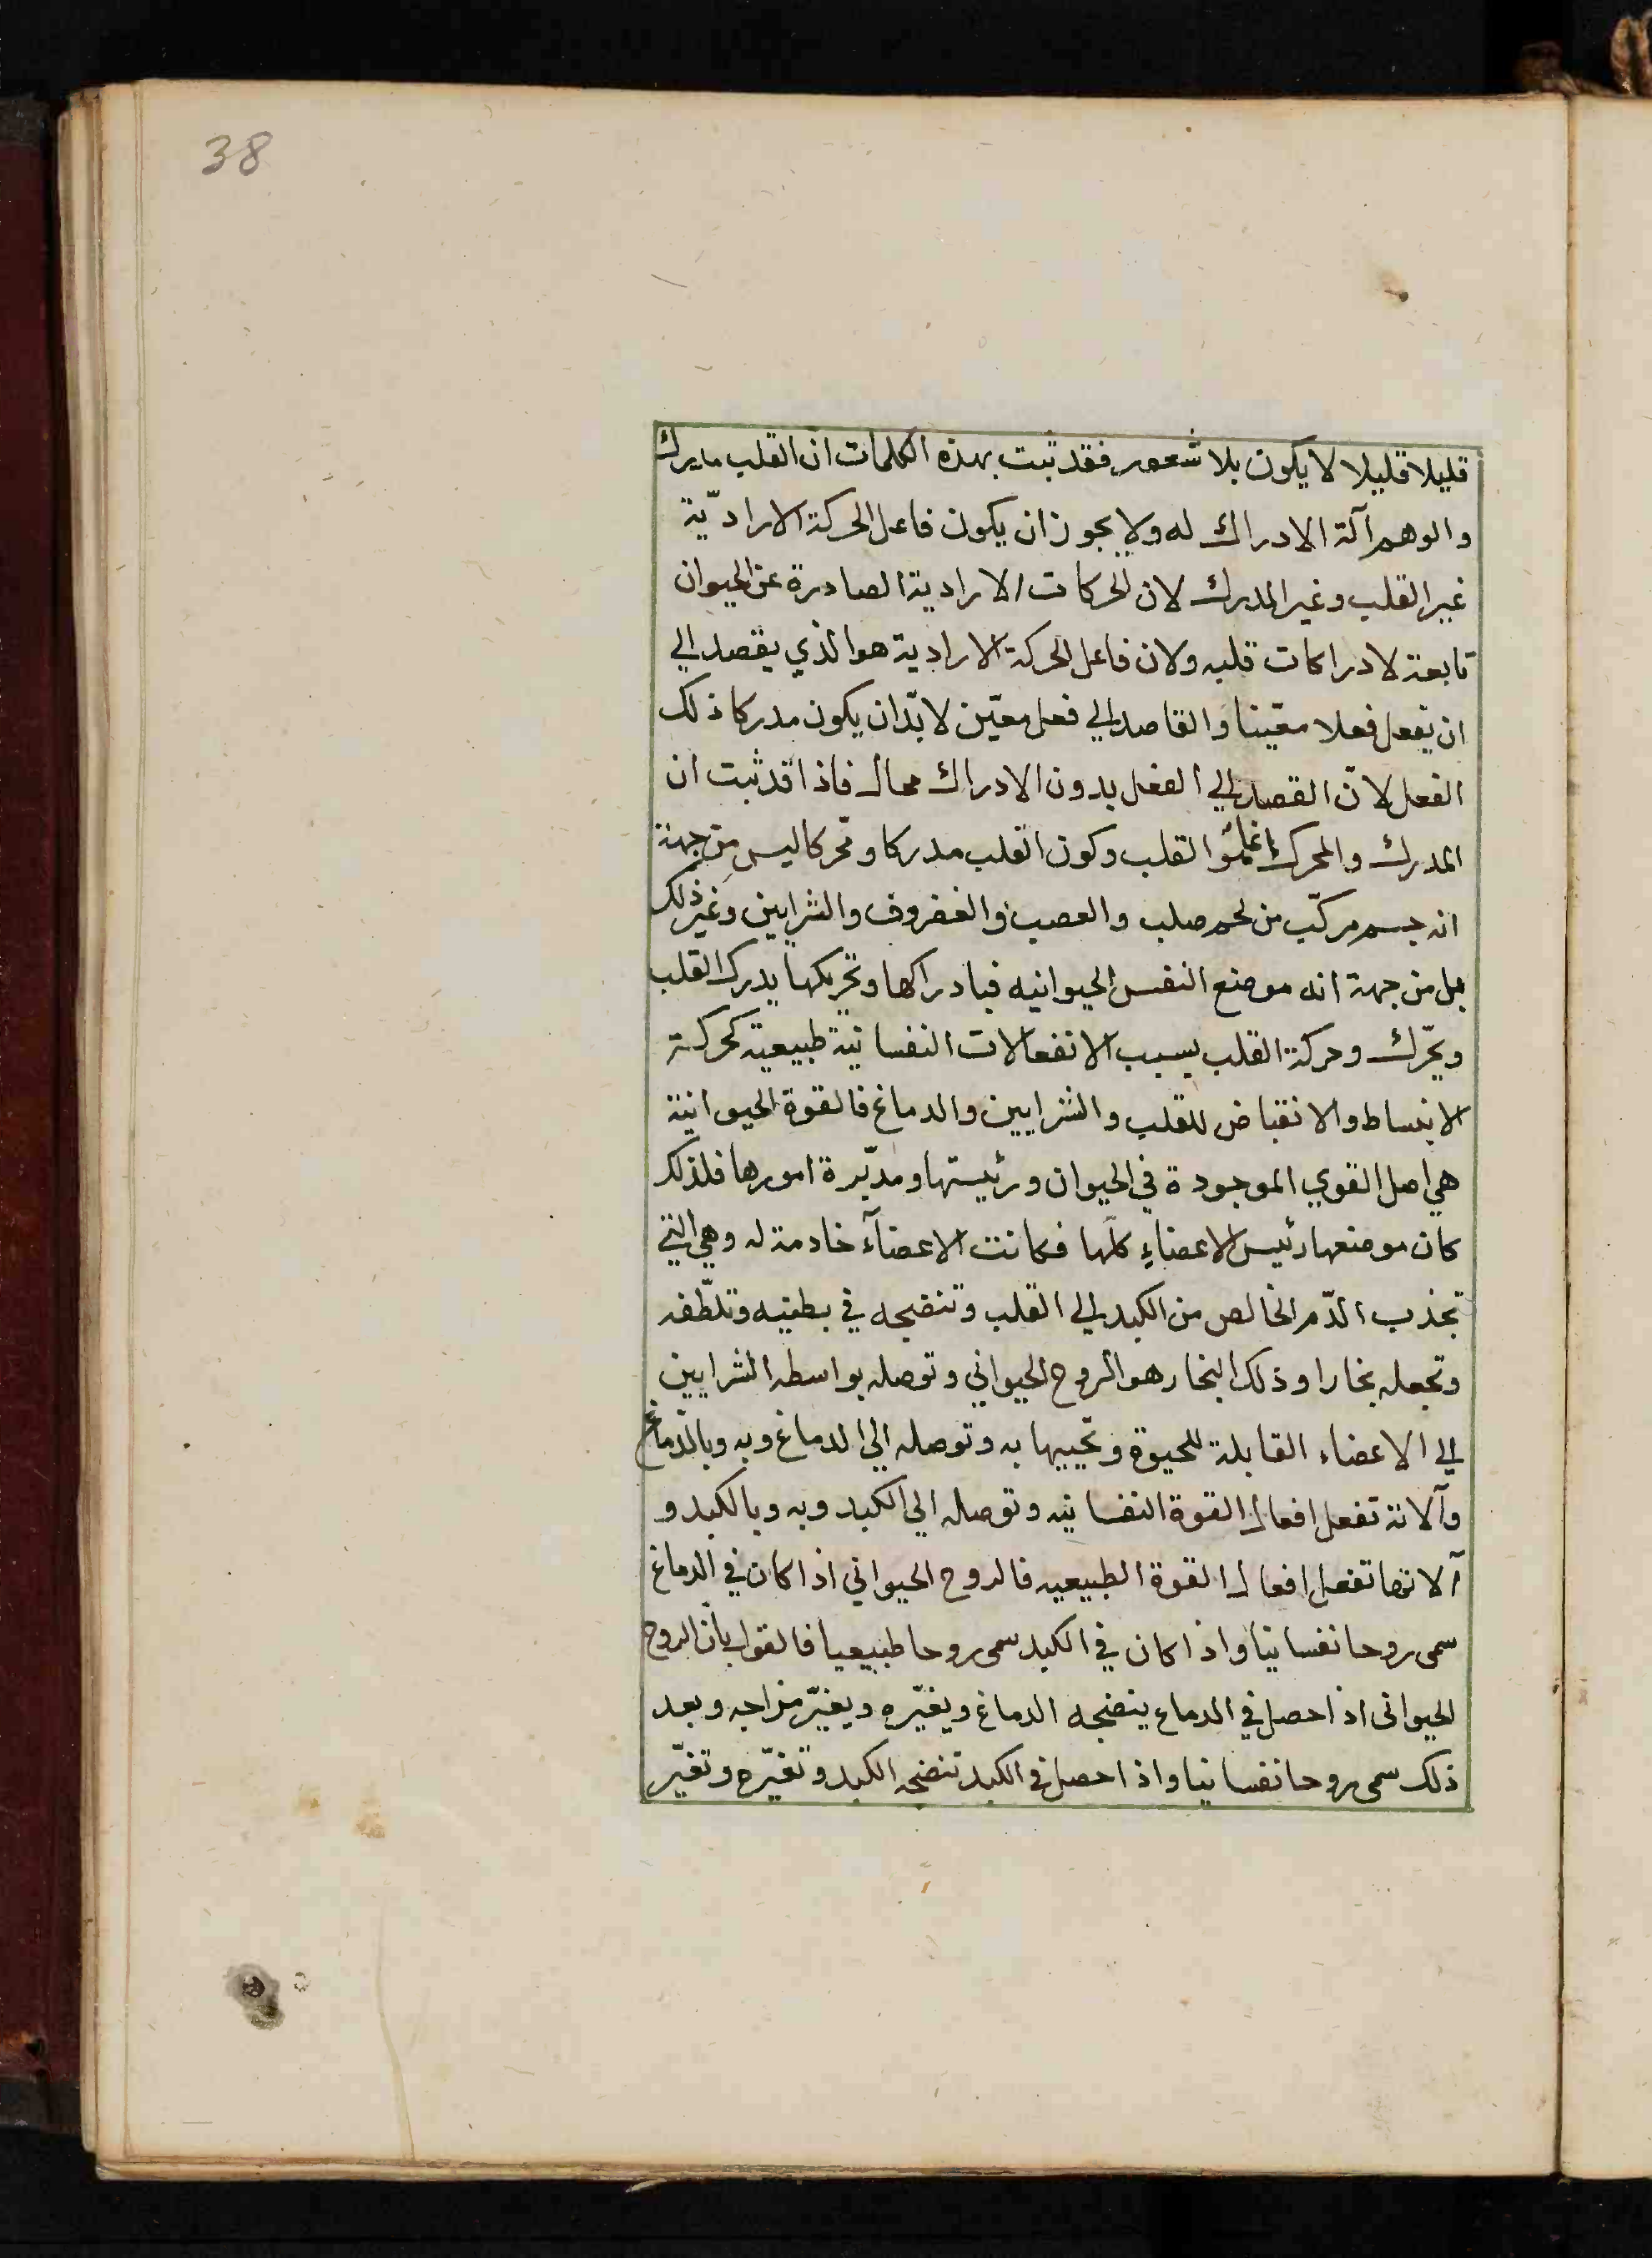 38
قليلا قليلا لا يكون بلا شعور فقد ثبت بهذه الكلمات ان القلب مايدرك
والوهم آلة الادراك له ولا يجوز ان يكون فاعل الحركة الاراديّة
غير القلب وغير المدرك لان الحركات الارادية الصادرة عن الحيوان
تابعة لادراكات قلبه ولان فاعل الحركة الارادية هو الذي يقصد الي
ان يفعل فعلا معيّنا والقاصد الي فعل معيّن لا بدّ ان يكون مدركا ذلك
الفعل لانّ القصد الي الفعل بدون الادراك محال فاذا قد ثبت ان
المدرك والمحرك القلب وكون القلب مدركا ومحركا ليس من جهة
انه جسم مركّب من لحم صلب والعصب والغضروف والشرايين وغير ذلك
بل من جهة انه موضع النفس الحيوانيه فبادراكها وتحريكها يدرك القلب
ويحرّك وحركة القلب بسبب الانفعالات النفسانية طبيعية كحركة
الانبساط والانقباض للقلب والشرايين والدماغ فالقوة الحيوانية
هي اصل القوي الموجودة في الحيوان ورئيستها ومدبّرة امورها فلذلك
كان موضعها رئيس الاعضاءِ كلّها فكانت الاعضآء خادمة له وهي التي
تجذب الدّم الخالص من الكبد الي القلب وتنضجه في بطنيه وتلطّفه
وتجعله بخارا وذلك البخار هو الروح الحيواني وتوصله بواسطه الشرايين
الي الاعضاء القابلة للحيوة وتحييها به وتوصله الي الدماغ وبه وبالدّماغ
وآلاته تفعل افعال القوة النفسانيه وتوصله الي الكبد وبه وبالكبد و
آلاتها تفعل افعال القوة الطبيعيه فالروح الحيواني اذا كان في الدماغ
سمى روحا نفسانيا واذا كان في الكبد سمى روحا طبيعيا فالقول بانّ الروح
الحيوانى اذا حصل في الدماغ ينضجه الدماغ ويغيّره ويغيّر مزاجه وبعد
ذلك سمى روحا نفسانيا واذا حصل في الكبد تنضجه الكبد وتغيّره وتغيّر